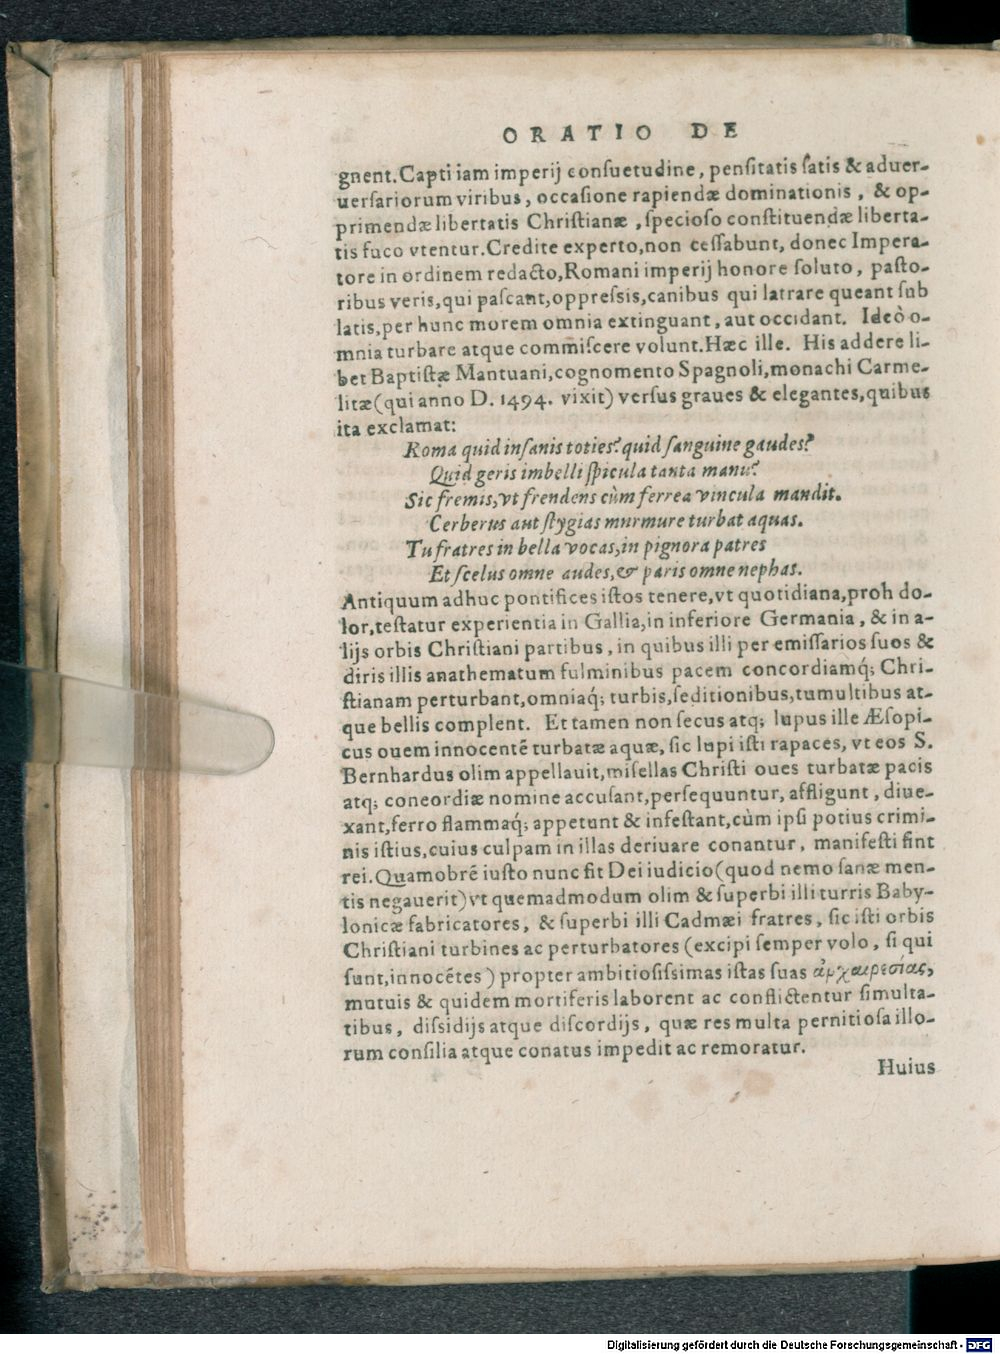 ORATIO DE
gnent.Capti iam imperij consuetudine, pensitatis satis & aduer-
uersariorum viribus, occasione rapiendæ dominationis, & op-
primendæ libertatis Christianæ, specioso constituendæ liberta-
tis fuco vtentur.Credite experto,non cessabunt, donec Impera-
tore in ordinem redacto,Romani imperij honore soluto, pasto-
ribus veris,qui pascant,oppressis,canibus qui latrare queant sub
latis,per hunc morem omnia extinguant, aut occidant. Ideò o-
mnia turbare atque commiscere volunt.Hæc ille. His addere li-
bet Baptistæ Mantuani,cognomento Spagnoli,monachi Carme-
litæ(qui anno D. 1494. vixit) versus graues & elegantes,quibus
ita exclamat:
Roma quid insanis toties? quid sanguine gaudes?
Quid geris imbelli spicula tanta manu?
Sic fremis,vt frendens cùm ferrea vincula mandit.
Cerberus aut stygias murmure turbat aquas.
Tu fratres in bella vocas,in pignora patres
Et scelus omne audes,& paris omne nephas.
Antiquum adhuc pontifices istos tenere,vt quotidiana,proh do-
lor,testatur experientia in Gallia,in inferiore Germania, & in a-
lijs orbis Christiani partibus, in quibus illi per emissarios suos &
diris illis anathematum fulminibus pacem concordiamq́; Chri-
stianam perturbant,omniaq́; turbis,seditionibus,tumultibus at-
que bellis complent. Et tamen non secus atq; lupus ille Æsopi-
cus ouem innocentẽ turbatæ aquæ, sic lupi isti rapaces, vt eos S.
Bernhardus olim appellauit,misellas Christi oues turbatæ pacis
atq; coneordiæ nomine accusant,persequuntur, affligunt, diue-
xant,ferro flammaq́; appetunt & infestant,cùm ipsi potius crimi-
nis istius,cuius culpam in illas deriuare conantur, manifesti sint
rei.Quamobrẽ iusto nunc fit Dei iudicio(quod nemo sanæ men-
tis negauerit)vt quemadmodum olim & superbi illi turris Baby-
lonicæ fabricatores, & superbi illi Cadmæi fratres, sic isti orbis
Christiani turbines ac perturbatores (excipi semper volo, si qui
sunt,innocẽtes) propter ambitiosissimas istas suas ἀρχαιρεσίας,
mutuis & quidem mortiferis laborent ac conflictentur simulta-
tibus, dissidijs atque discordijs, quæ res multa pernitiosa illo-
rum consilia atque conatus impedit ac remoratur.
Huius
Digitalisierung gefördert durch die Deutsche Forschungsgemeinschaft - DFG